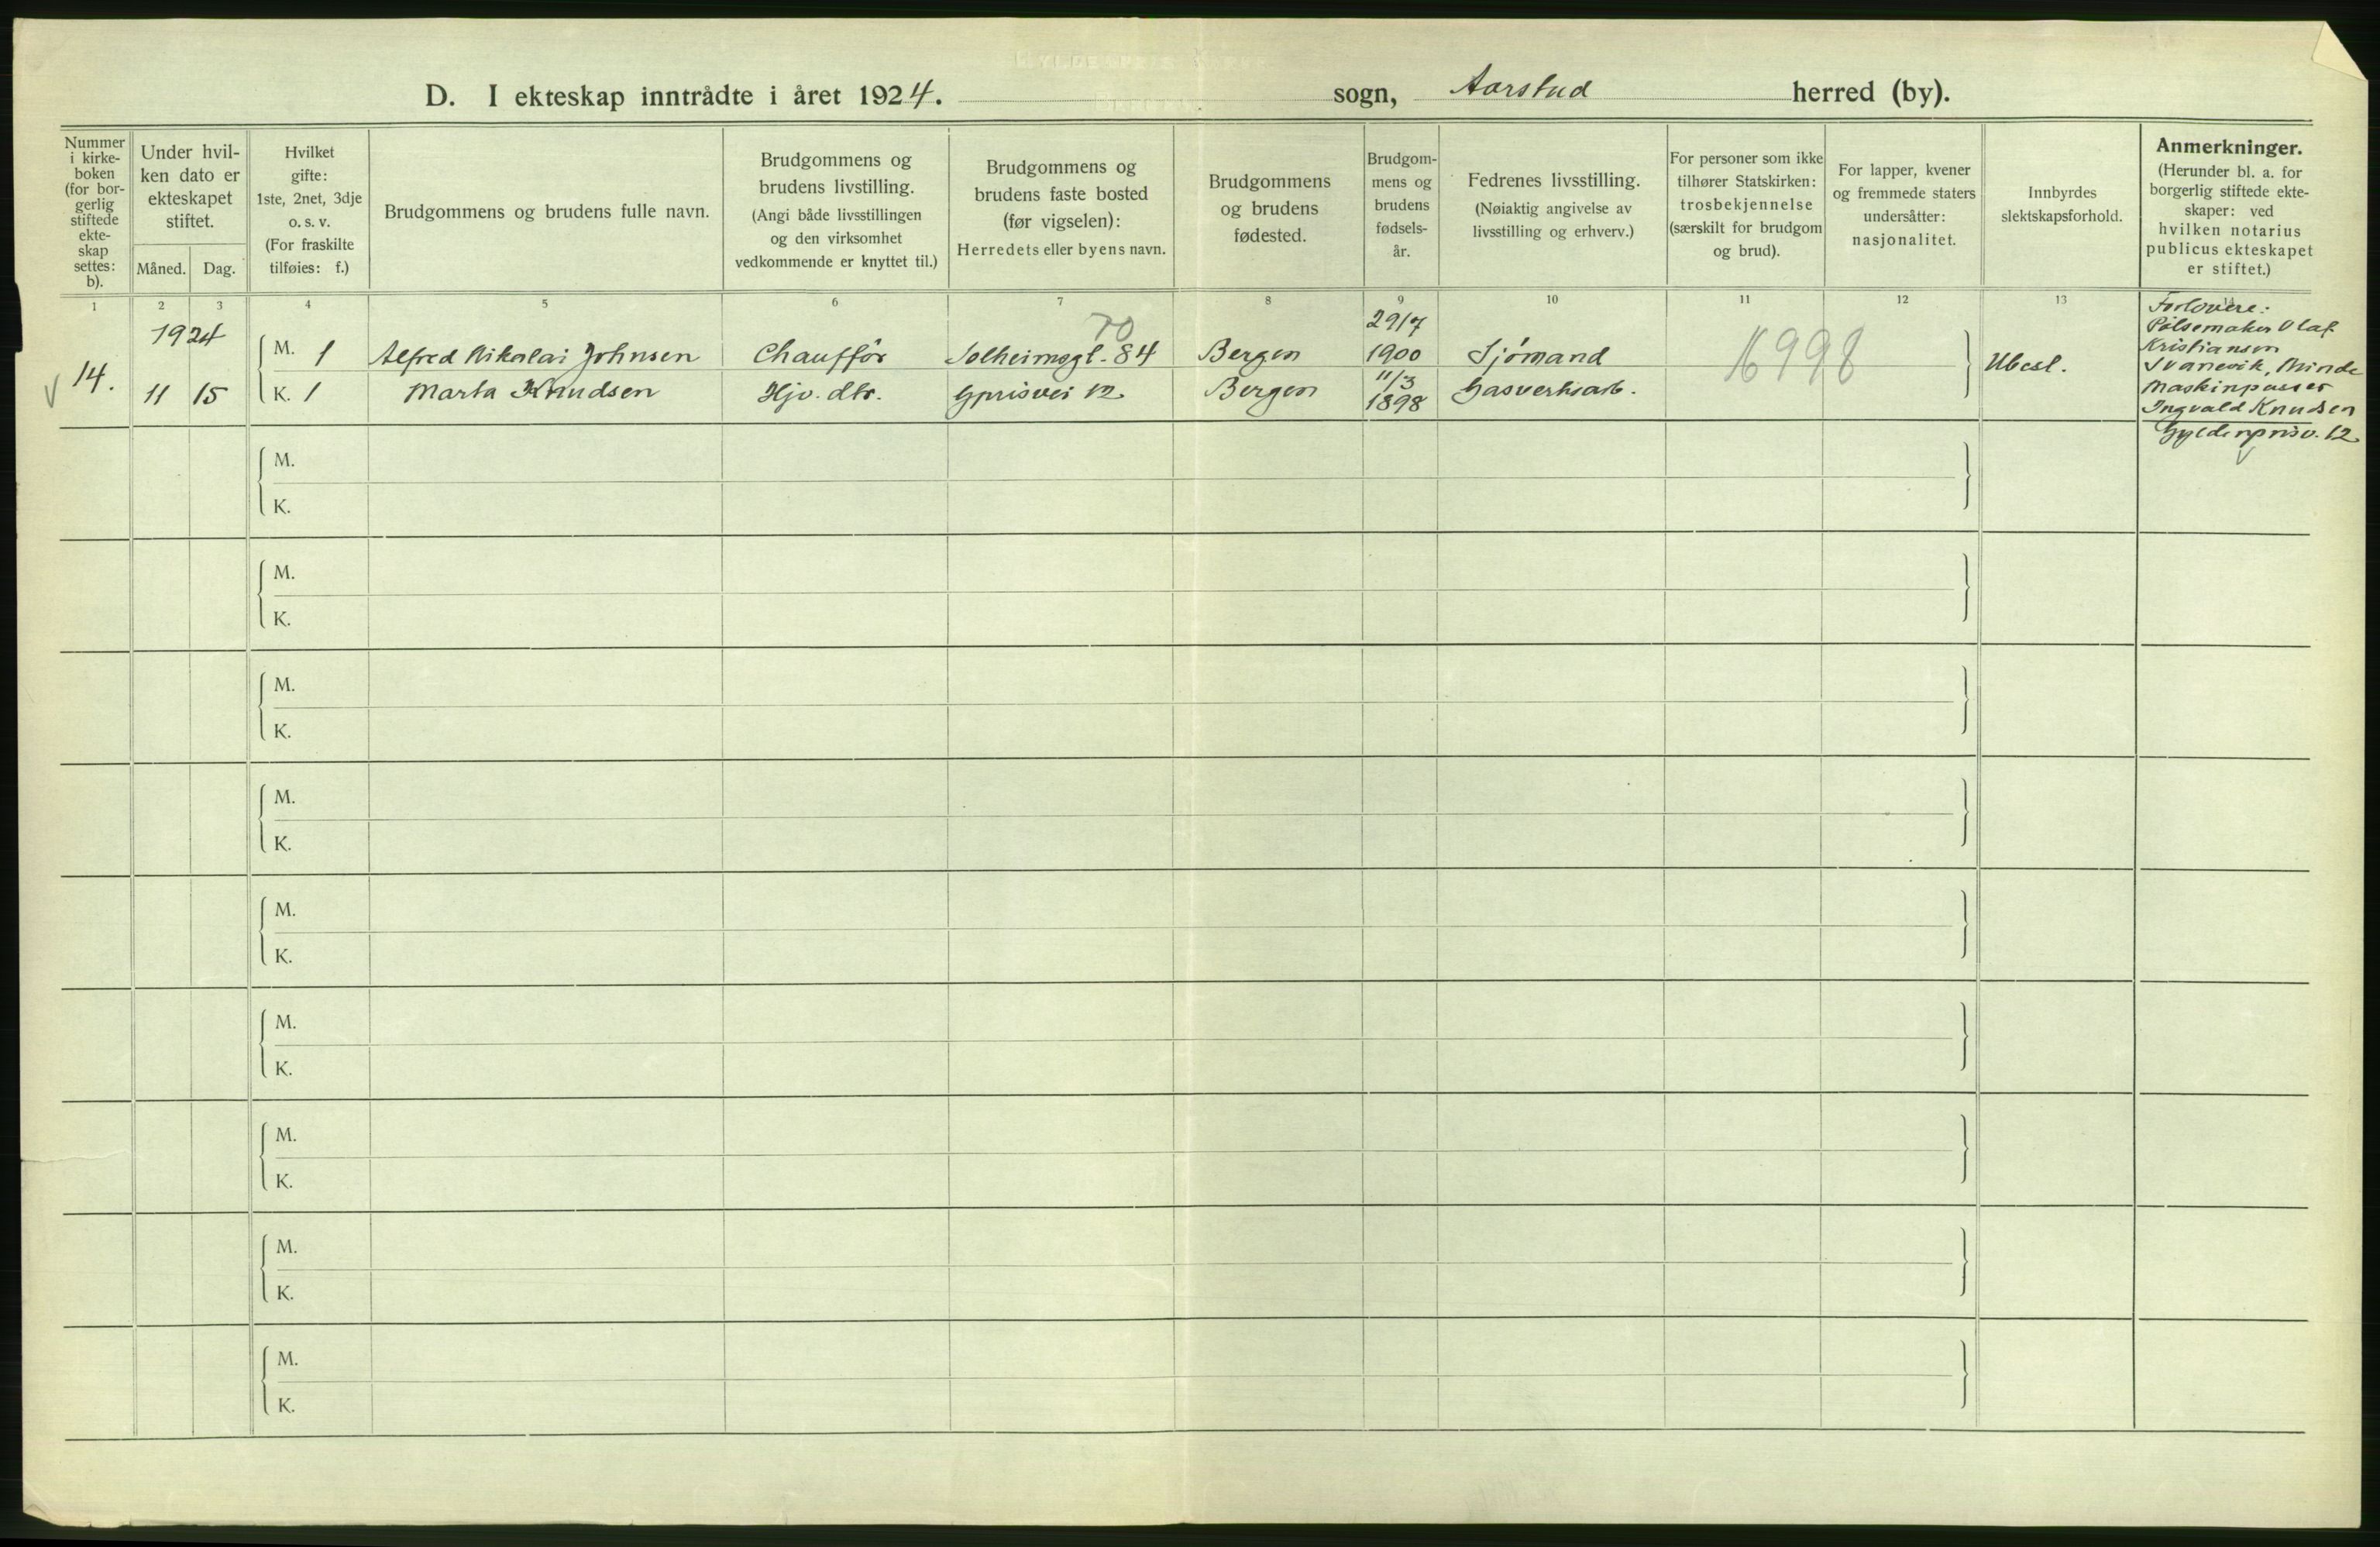 D. I ekteskap inntrådte i året 1924. sogn, Aarstad herred (by).
Nummer
i kirke-
boken
(for bor-
gerlig
stiftede
ekte-
skap
settes:
b).
Under hvil-
ken dato er
ekteskapet
stiftet.
Måned. Dag.
Hvilket
gifte:
1ste, 2net, 3dje
o. s. v.
(For fraskilte
tilføies: f.)
Brudgommens og brudens fulle navn.
Brudgommens og
brudens livstilling.
(Angi både livsstillingen
og den virksomhet
vedkommende er knyttet til.)
Brudgommens og
brudens faste bosted
(før vigselen):
Herredets eller byens navn.
Brudgommens
og brudens
fødested.
Brudgom-
mens og
brudens
fødsels-
år.
Fedrenes livsstilling.
(Nøiaktig angivelse av
livsstilling og erhverv.)
For personer som ikke
tilhører Statskirken:
trosbekjennelse
(særskilt for brudgom
og brud).
For lapper, kvener
og fremmede staters
undersåtter:
nasjonalitet.
Innbyrdes
slektskapsforhold.
Anmerkninger.
(Herunder bl. a. for
borgerlig stiftede ekte-
skaper: ved
hvilken notarius
publicus ekteskapet
er stiftet.)
1 2 3 4 5 6 7 8 9 10 11 12 13 14
1924
14.
11 15
M. 1 Alfred Nikolai Johnsen Chaufför Solheimsgt. 84 70 Bergen 29/7 1900 Sjömand
K. 1 Marta Knudsen Hjv. dtr. Gprisvei 12 Bergen 11/3 1898 Gasverksarb.
16998
Ubesl.
Forlovere:
Pölsemaker Olaf
Kristiansen
Svanevik, Minde
Maskinpasser
Ingvald Knudsen
Gyldenprisv. 12
M.
K.
M.
K.
M.
K.
M.
K.
M.
K.
M.
K.
M.
K.
M.
K.
M.
K.